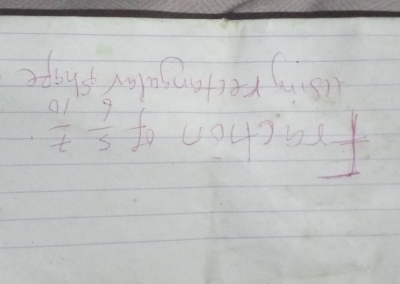 Fraction of 5/6 7/10
using rectangular shape